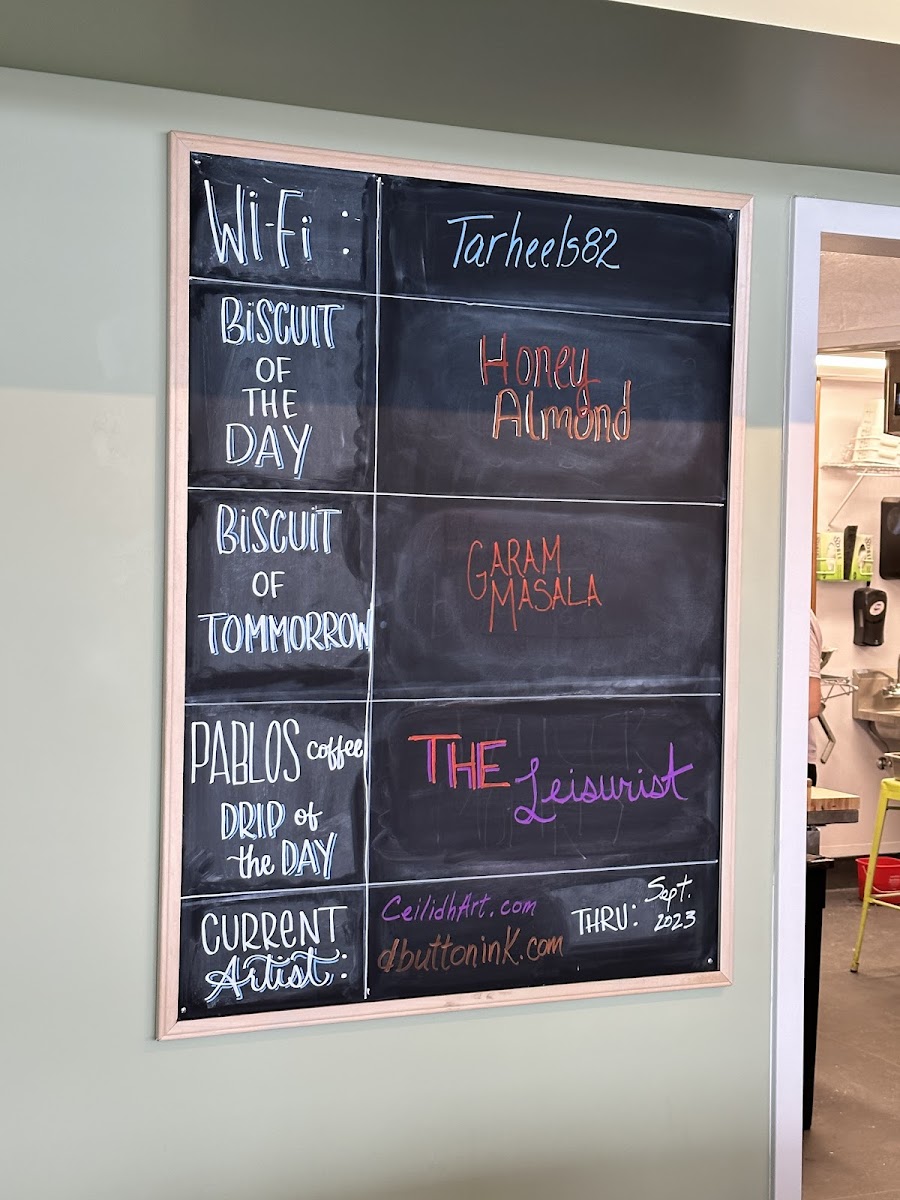 Wi-Fi : Tarheels82
BISCUIT
OF
THE
DAY
Honey
Almond
BISCUIT
OF
TOMMORROW
GARAM
MASALA
PABLOS coffee
DRIP of
the DAY
THE Leisurist
CURRENT
Artist :
CeilidhArt.com
dbuttonink.com
THRU: Sept.
2023